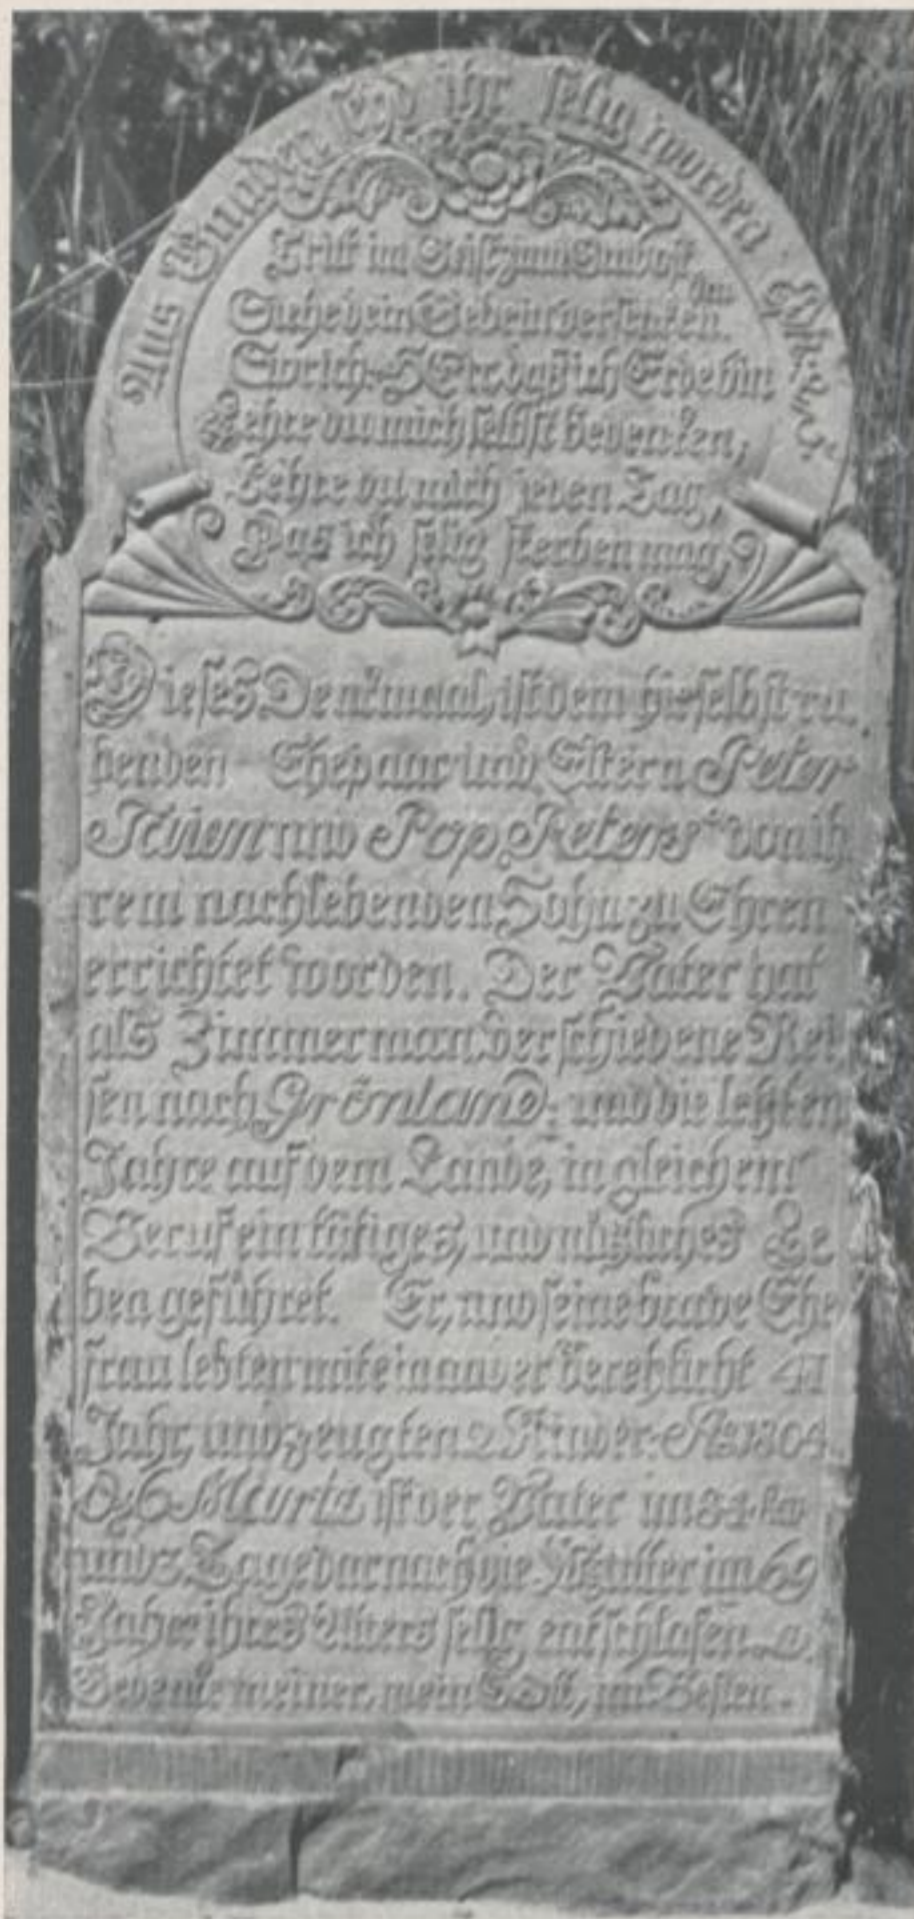 Aus Gnaden seyd ihr selig worden Eph: 2, v, 5.
Tritt im Geist zum
Siehe dein Gebein versenken.
Sprich: HErr das ich Erde bin,
Lehre du mich selbst bedencken,
Lehre du mich jeden Tag,
Das ich selig sterben mag.
Dieses Denkmaal, ist dem hieselbst ru
henden Ehepaar und Eltern Peter
und Pop Peters von ih
rem nachlebenden Sohn zu Ehren
errichtet worden. Der Vater hat
als Zimmerman verschiedene Rei
sen nach Grönland, und die letzten
Jahre auf dem Lande, in gleichem
Beruf ein tätiges, und nützliches Le
ben geführet. Er, und seine brave Ehe
frau lebten miteinander verehlicht 41
Jahr, und zeugten 2 Kinder. Ao 1804
D. 6 Martz ist der Vater im 84
und 3 Tage darnach die Mutter im 69
Jahre ihres Alters selig entschlafen.
Gedenke meiner, mein GOtt, im Besten.